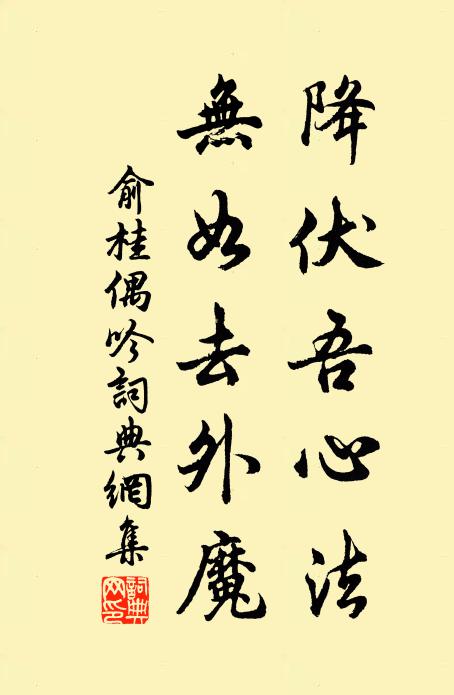 降伏吾心法
無如去外魔
俞桂偶吟詞典網集
詞典網印